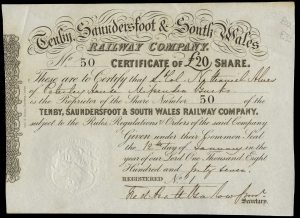 Tenby, Saundersfoot & South Wales
RAILWAY COMPANY.
No. 50 CERTIFICATE OF £20 SHARE.
These are to Certify that Nathaniel
of House Bucks
is the Proprietor of the Share Number 50 of the
TENBY, SAUNDERSFOOT & SOUTH WALES RAILWAY COMPANY,
subject to the Rules, Regulations & Orders of the said Company
Given under their Common Seal
the 12th day of January in the
year of our Lord One Thousand Eight
Hundred and forty seven.
REGISTERED
Secretary.